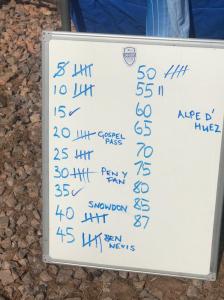 5
10
15 ✓
20 GOSPEL PASS
25
30 PEN Y FAN
35 ✓
SNOWDON
40
45 BEN NEVIS
50
55 ||
60
65
70
75
80
85
87
ALPE D'
HUEZ